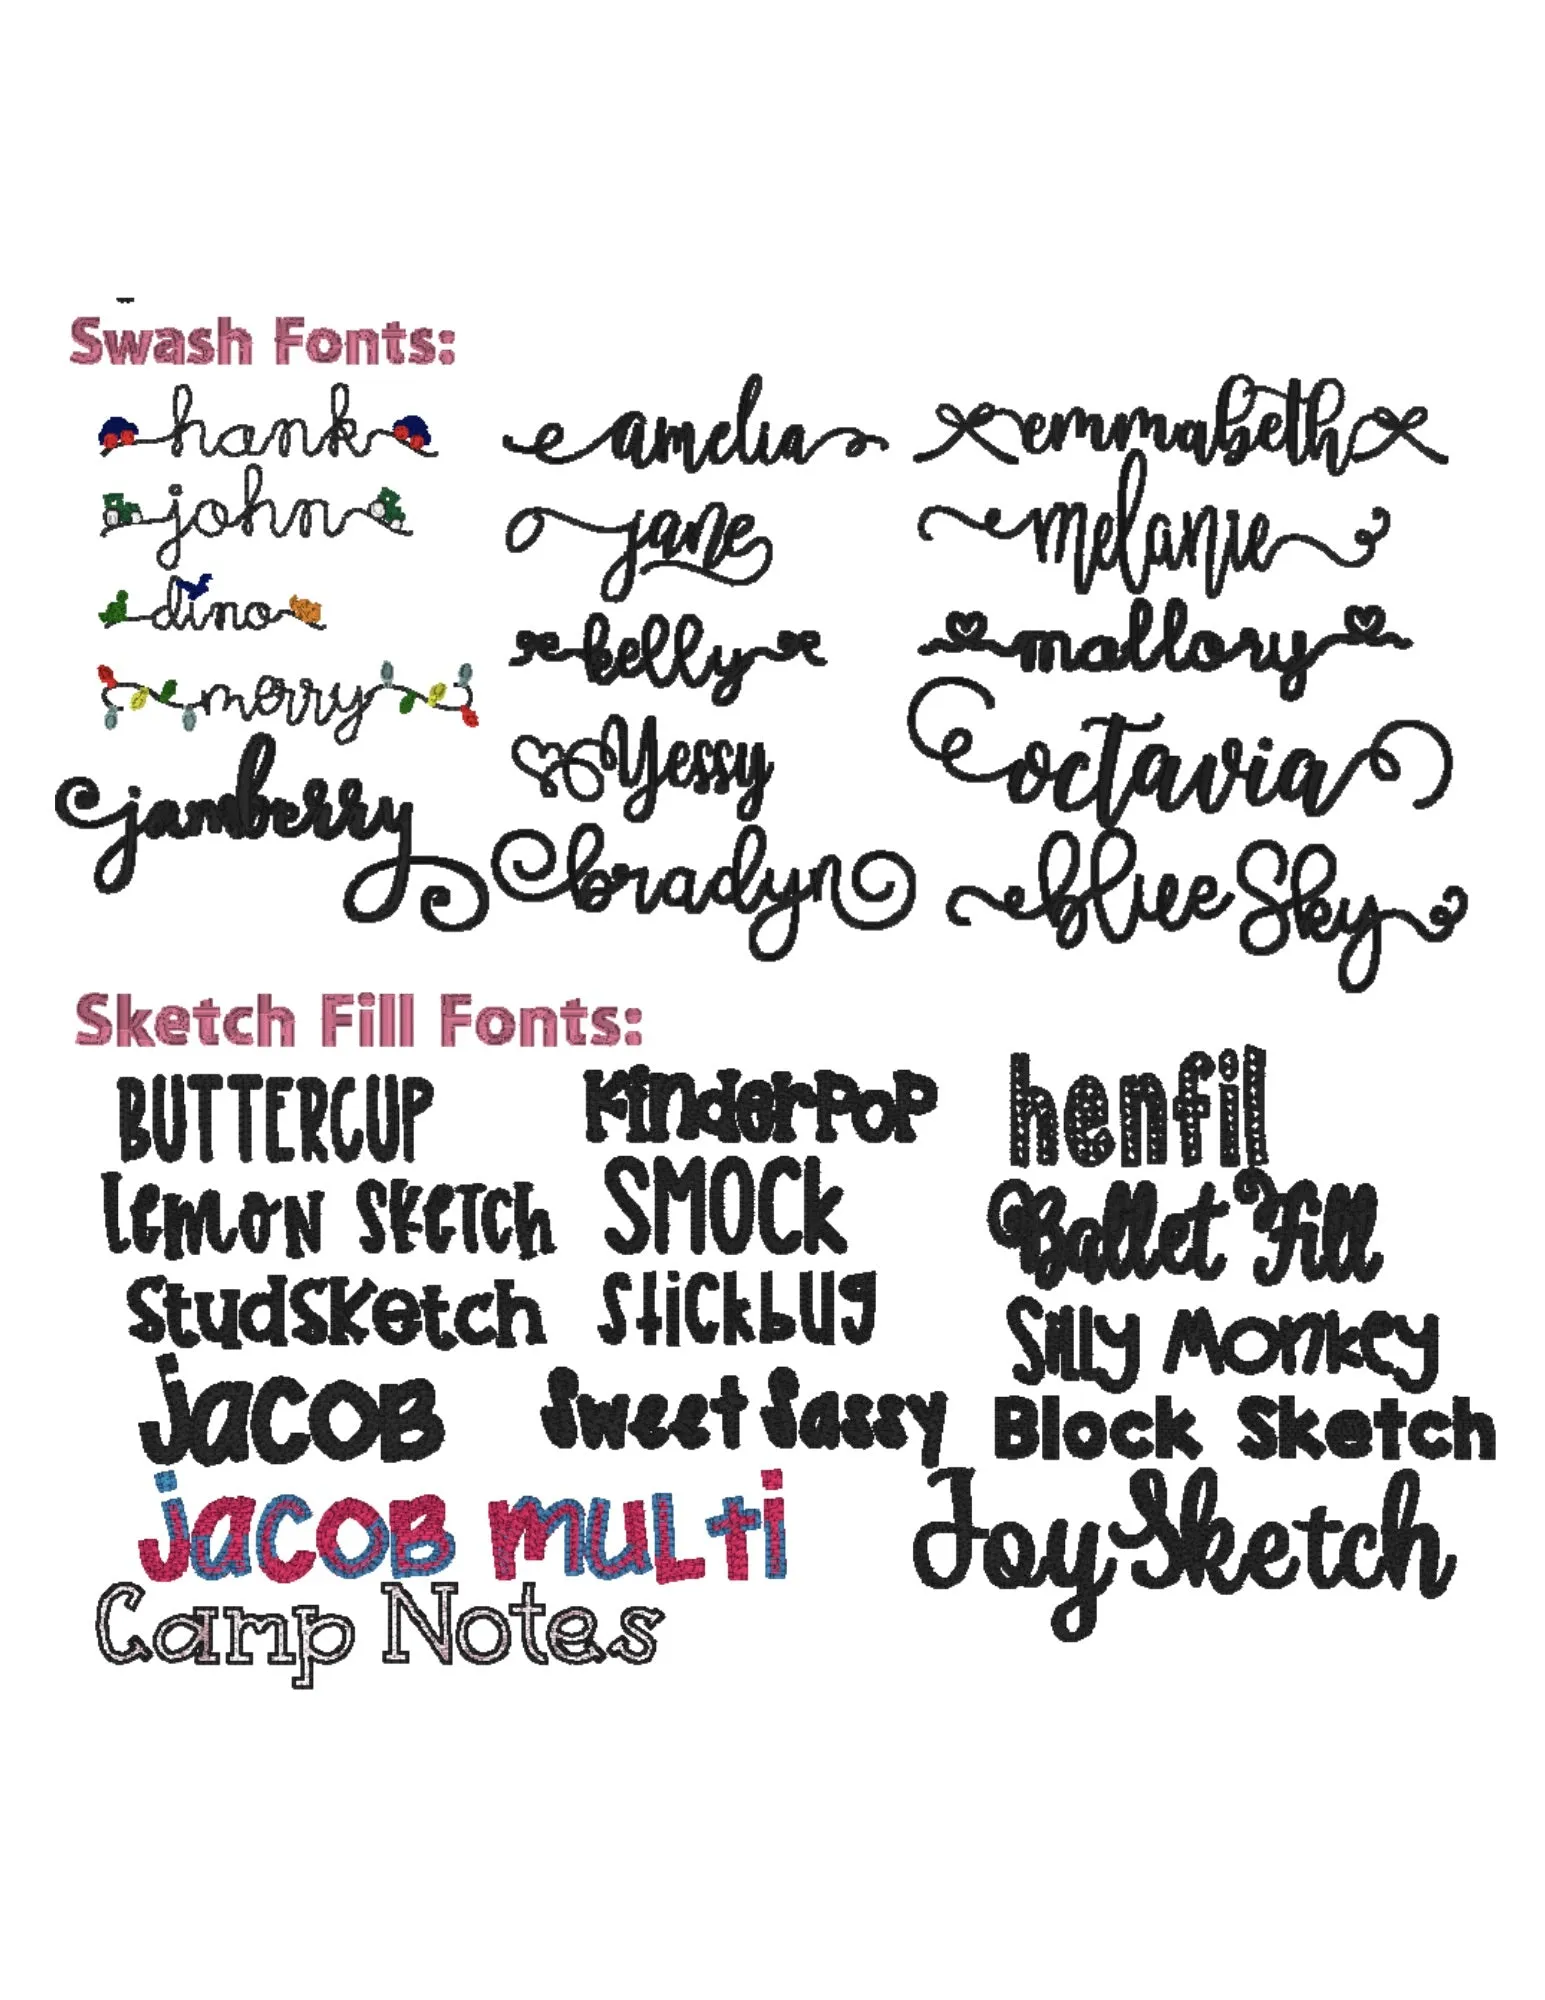 Swash Fonts:
hank
john
dino
merry
jamberry
amelia
jane
kelly
Yessy
bradyn
emmabeth
melanie
mallory
octavia
blue Sky
Sketch Fill Fonts:
BUTTERCUP
Lemon Sketch
StudSketch
jacob
jacob multi
Camp Notes
KinderPoP
SMOCK
Stickbug
Sweet Sassy
henfil
Ballet Fill
Silly Monkey
Block Sketch
Joy Sketch